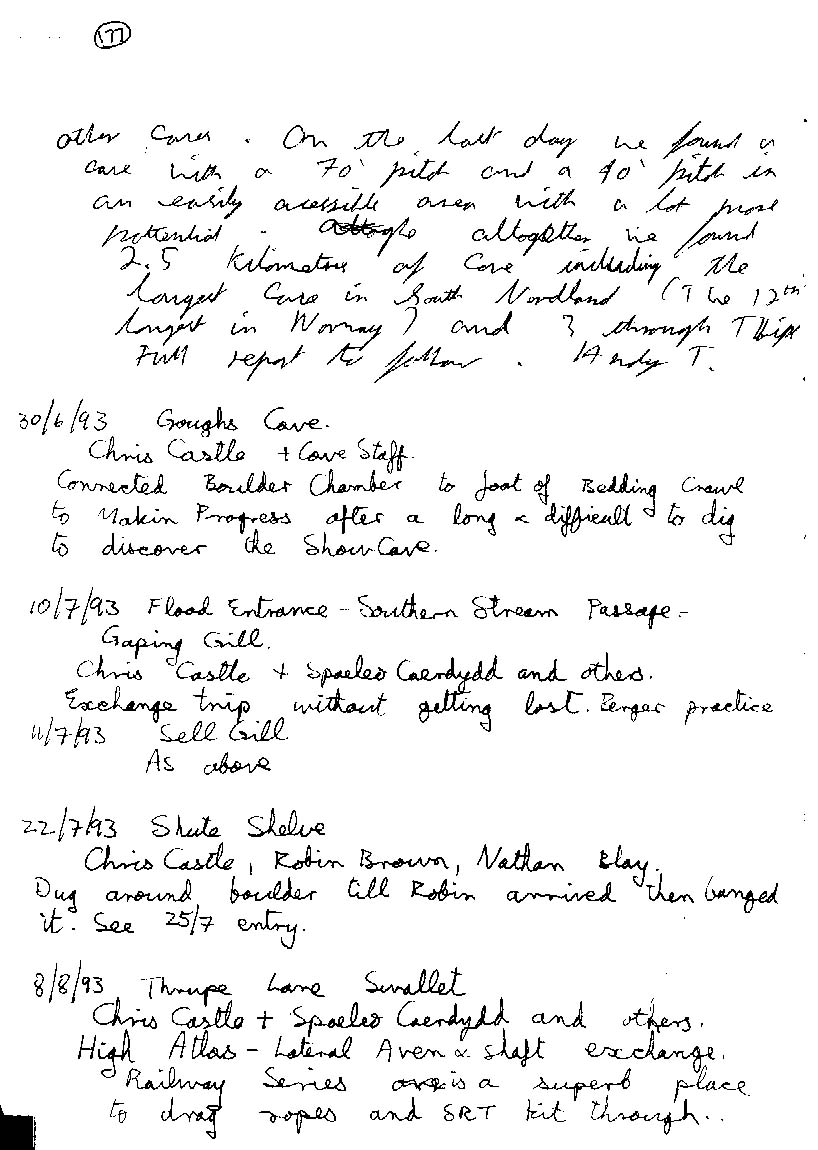 177
other caves. On the last day we found a
cave with a 70' pitch and a 40' pitch in
an easily acessible area with a lot more
potential. altogether we found
2.5 Kilometres of cave including the
longest Cave in South Nordland (The 12th
longest in Norway) and 3 through Trips
Full report to follow. Andy T.
30/6/93 Goughs Cave.
Chris Castle + Cave Staff.
Connected Boulder Chamber to foot of Bedding Crawl
to Makin Progress after a long & difficult to dig
to discover the Show Cave.
10/7/93 Flood Entrance - Southern Stream Passage -
Gaping Gill.
Chris Castle + Spaeleo Caerdydd and others.
Exchange trip without getting lost. Berger practice
11/7/93 Sell Gill
As above
22/7/93 Shute Shelve
Chris Castle, Robin Brown, Nathan Blay.
Dug around boulder till Robin arrived then banged
it. See 25/7 entry.
8/8/93 Thrupe Lane Swallet
Chris Castle + Spaeleo Caerdydd and others.
High Atlas - Lateral Aven & shaft exchange.
Railway Series is a superb place
to drag ropes and SRT kit through..